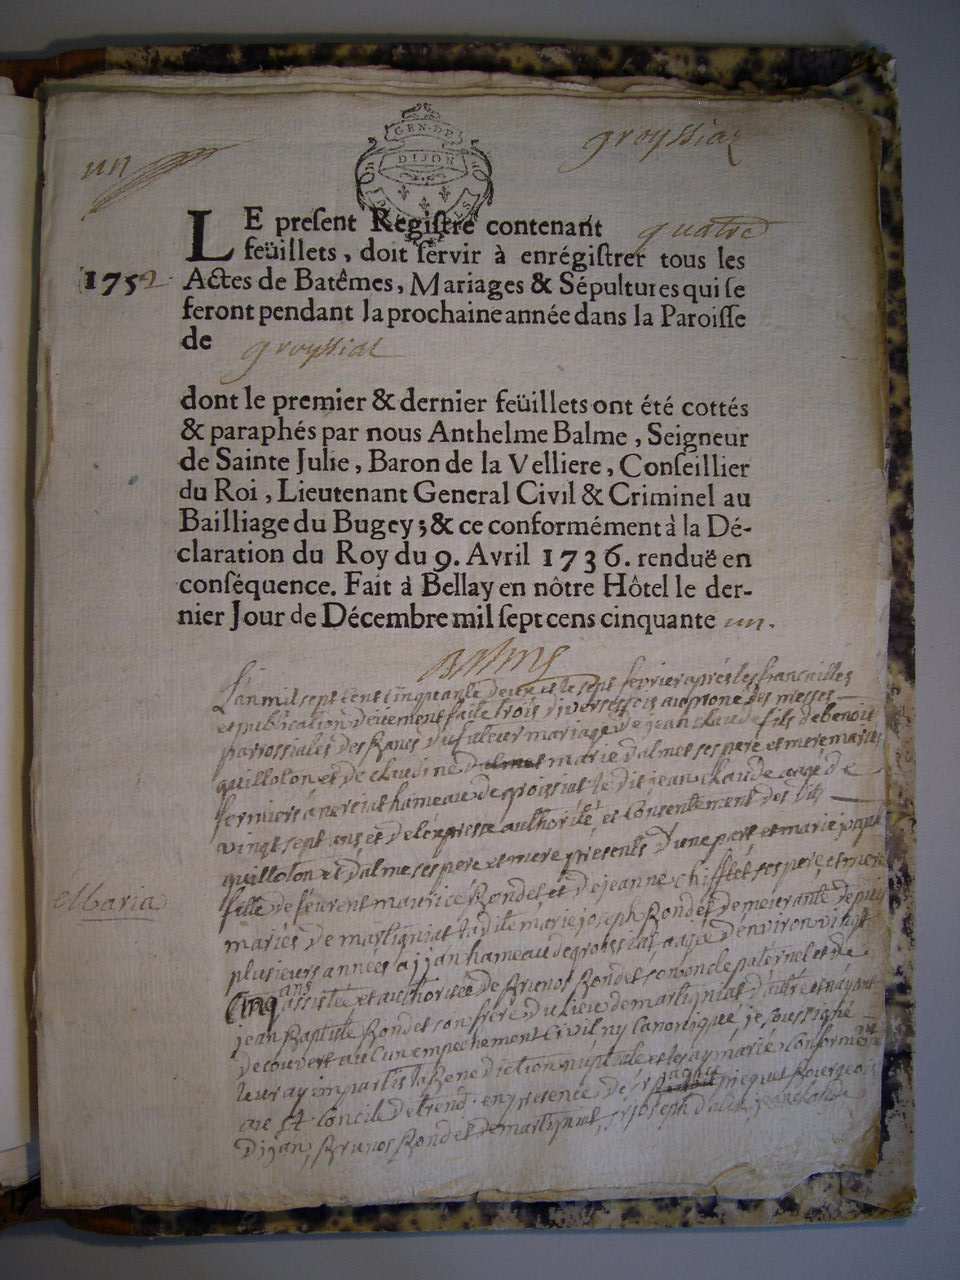 un
groyssiat
GEN. DE
DIJON
LE present Registre contenant quatre
feüillets, doit servir à enrégistrer tous les
1752
Actes de Batêmes, Mariages & Sépultures qui se
feront pendant la prochaine année dans la Paroisse
de groyssiat
dont le premier & dernier feüillets ont été cottés
& paraphés par nous Anthelme Balme, Seigneur
de Sainte Julie, Baron de la Velliere, Conseillier
du Roi, Lieutenant General Civil & Criminel au
Bailliage du Bugey; & ce conformément à la Dé-
claration du Roy du 9. Avril 1736. renduë en
conséquence. Fait à Bellay en nôtre Hôtel le der-
nier Jour de Décembre mil sept cens cinquante un.
Balme
L'an mil sept cent cinquante deux et le sept fevrier après les fiancailles
et publication deüement faite trois diverses fois au prone des messes
parrossiales des bancs du futeur mariage de jean claude fils de benoit
guilloton et de claudine dalmet marie dalmet ses pere et mere mariés
fermiers a nerciat hameau de groissiat le dit jean claude agé de
vingt sept ans et de l'expresse authorité et consentement des dits
guilloton et dalmet ses pere et mere presents d'une part et marie joseph
fille de feu maurice Rondet et de jeanne chifflet ses pere et mere
Maria
mariés de martigniat la dite marie joseph Rondet demeurante depuis
plusieurs années a jjan hameau de groissiat agée d'environ vingt
cinq ans assistée et authorisée de brunos Rondet son oncle paternel et de
jean baptiste Rondet son frere du lieu de martigniat d'autre et n'ayant
decouvert aucun empechement civil ny canonique je soussigné
leur ay imparti la benediction nuptiale et les ay marié conformement
au st concile de trend. en presence de sr picquet bourgeois
Dijan, brunos Rondet de martigniat, sr joseph jean claude